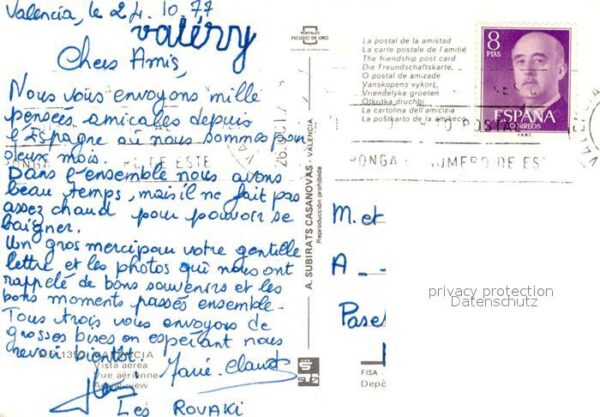 Valencia, le 24.10.77
valéry
Chers Amis,
Nous vous envoyons mille
pensées amicales depuis
l'Espagne où nous sommes pour
deux mois.
Dans l'ensemble nous avons
beau temps, mais il ne fait pas
assez chaud pour pouvoir se
baigner.
Un gros merci pour votre gentille
lettre et les photos qui nous ont
rappelé de bons souvenirs et les
bons moments passés ensemble.
Tous trois vous envoyons de
grosses bises en espérant nous
revoir bientôt.
Marie-Claude
LES ROVAKI
Vista aérea
Vue aérienne
POSTALES
ESCUDO DE ORO
A. SUBIRATS CASANOVAS - VALENCIA
Reproducción prohibida
La postal de la amistad
La carte postale de l'amitié
The friendship post card
Die Freundschaftskarte,
O postal de amizade
Vanskapens vykort,
Vriendelyke groeten
Otkritka druchbi
La cartolina dell'amicizia
La postkarto de la amikeco
8
PTAS
ESPAÑA
CORREOS
PONGA NUMERO DE ES
M. et
A
privacy protection
Datenschutz
FISA
Depó